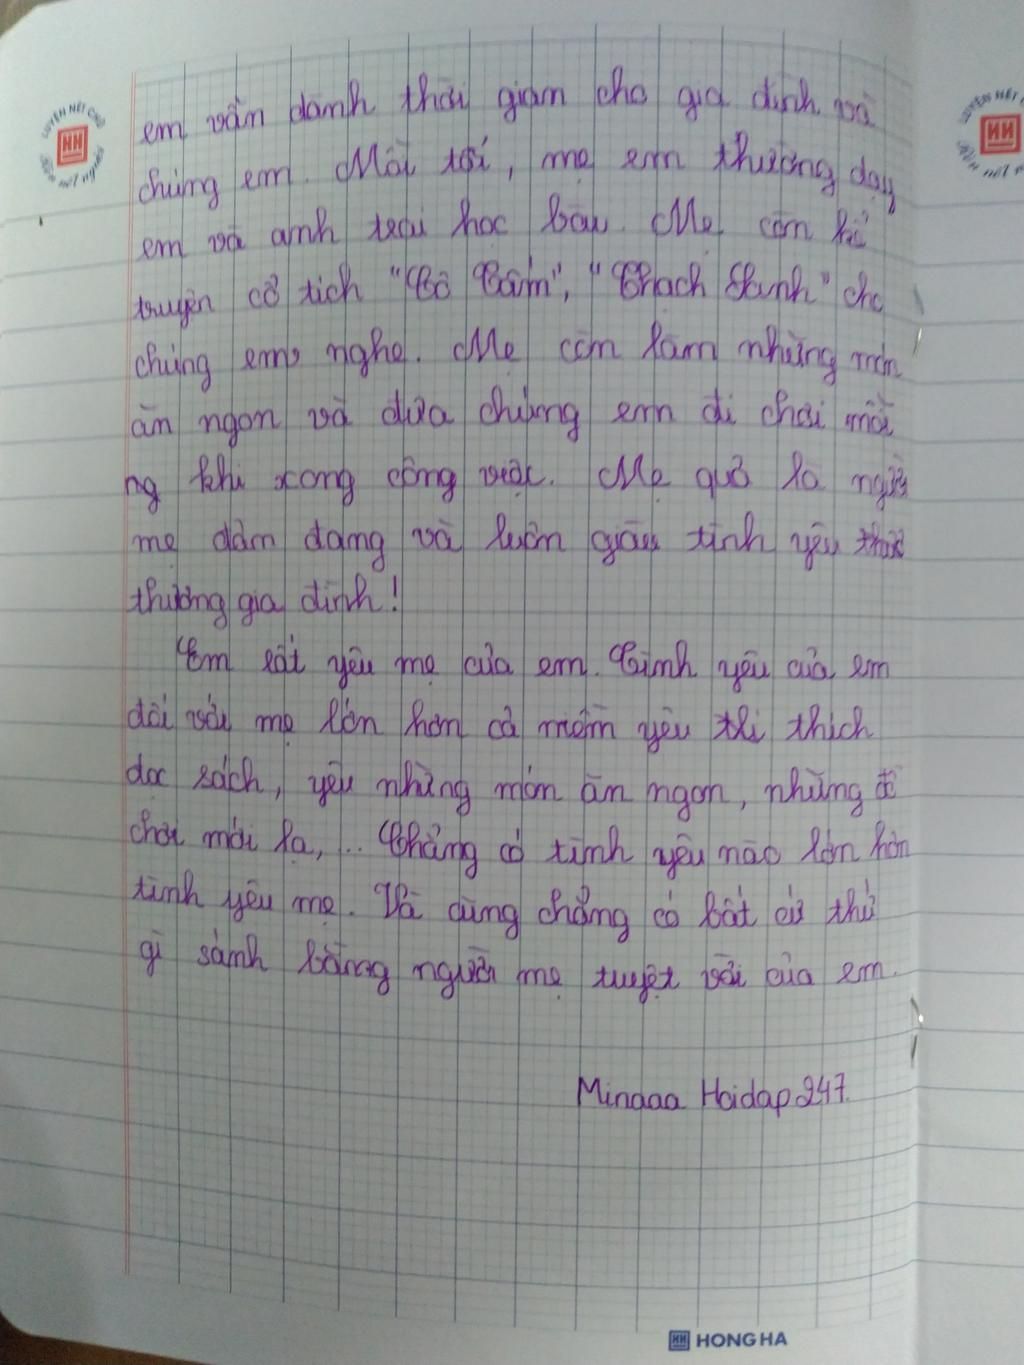 em vẫn dành thời gian cho gia đình và
chúng em. Mỗi tối, mẹ em thường dạy
em và anh trai học bài. Mẹ còn kể
truyện cổ tích "Cô Tấm", "Thạch Sanh" cho
chúng em nghe. Mẹ còn làm những món
ăn ngon và đưa chúng em đi chơi mỗi
khi xong công việc. Mẹ quả là người
mẹ đảm đang và luôn giàu tình yêu
thương gia đình!
Em rất yêu mẹ của em. Tình yêu của em
đối với mẹ lớn hơn cả niềm yêu thích
đọc sách, yêu những món ăn ngon, những đồ
chơi mới lạ,... Chẳng có tình yêu nào lớn hơn
tình yêu mẹ. Và cũng chẳng có bất cứ thứ
gì sánh bằng người mẹ tuyệt vời của em.
Minaaa Hoidap247.
HONG HA
LUYỆN NÉT CHỮ
Rèn nết người